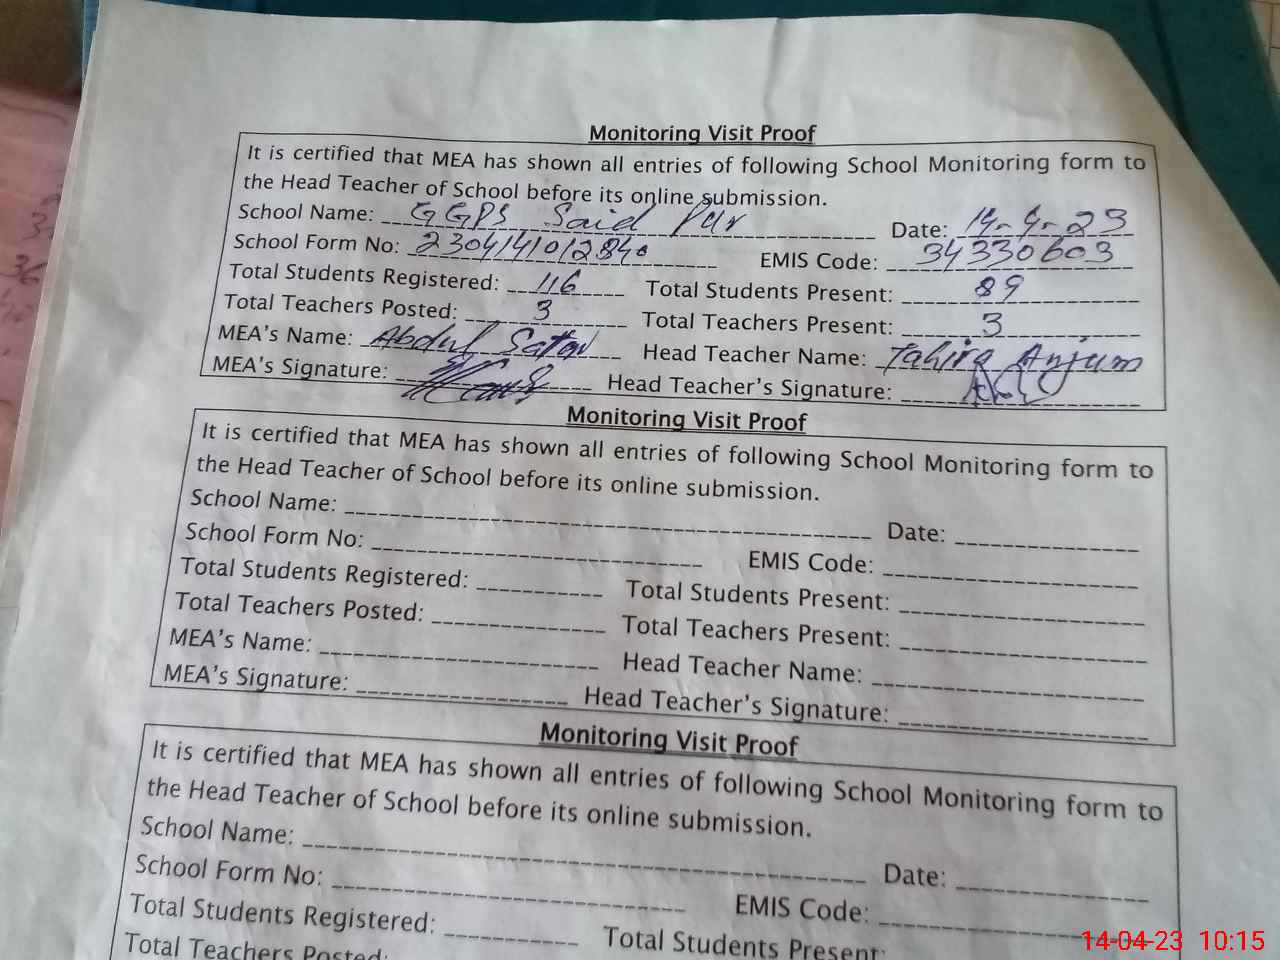 Monitoring Visit Proof
It is certified that MEA has shown all entries of following School Monitoring form to
the Head Teacher of School before its online submission.
School Name: GGPS Said Pur Date: 14-4-23
School Form No: 2304141012840 EMIS Code: 34330603
Total Students Registered: 116 Total Students Present: 89
Total Teachers Posted: 3 Total Teachers Present: 3
MEA's Name: Abdul Sattar Head Teacher Name: Tahira Anjum
MEA's Signature: Head Teacher's Signature:
Monitoring Visit Proof
It is certified that MEA has shown all entries of following School Monitoring form to
the Head Teacher of School before its online submission.
School Name: Date:
School Form No: EMIS Code:
Total Students Registered: Total Students Present:
Total Teachers Posted: Total Teachers Present:
MEA's Name: Head Teacher Name:
MEA's Signature: Head Teacher's Signature:
Monitoring Visit Proof
It is certified that MEA has shown all entries of following School Monitoring form to
the Head Teacher of School before its online submission.
School Name: Date:
School Form No: EMIS Code:
Total Students Registered: Total Students Present:
Total Teachers Posted:
14-04-23 10:15